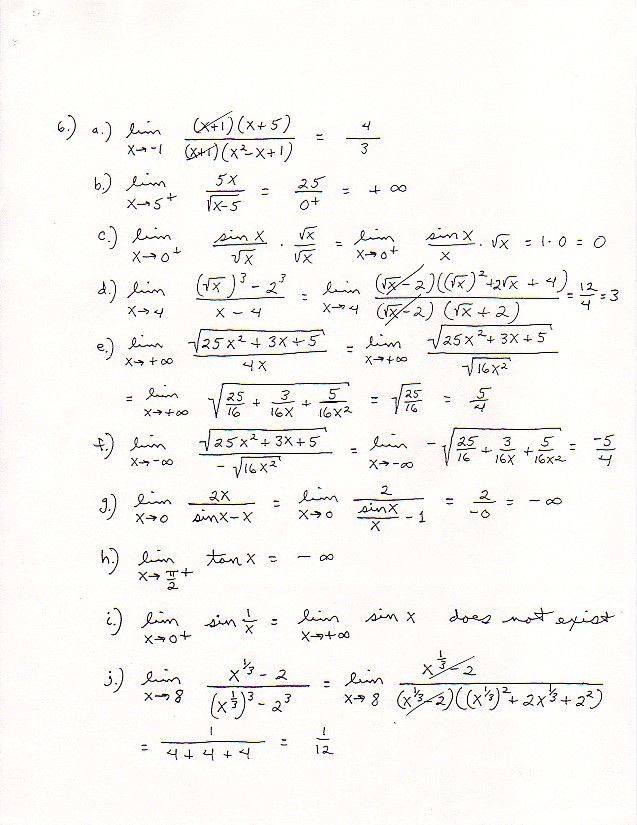 6.) a.) lim x→-1 (x+1)(x+5) / (x+1)(x²-x+1) = 4/3
b.) lim x→5⁺ 5x/√(x-5) = 25/0⁺ = +∞
c.) lim x→0⁺ sin x/√x · √x/√x = lim x→0⁺ sin x/x · √x = 1·0 = 0
d.) lim x→4 ((√x)³ - 2³)/(x - 4) = lim x→4 (√x - 2)((√x)² + 2√x + 4) / (√x - 2)(√x + 2) = 12/4 = 3
e.) lim x→+∞ √(25x² + 3x + 5) / 4x = lim x→+∞ √(25x² + 3x + 5) / √(16x²)
= lim x→+∞ √(25/16 + 3/16x + 5/16x²) = √(25/16) = 5/4
f.) lim x→-∞ √(25x² + 3x + 5) / -√(16x²) = lim x→-∞ -√(25/16 + 3/16x + 5/16x²) = -5/4
g.) lim x→0 2x/(sin x - x) = lim x→0 2/(sin x/x - 1) = 2/-0 = -∞
h.) lim x→π/2⁺ tan x = -∞
i.) lim x→0⁺ sin 1/x = lim x→+∞ sin x does not exist
j.) lim x→8 (x^(1/3) - 2)/((x^(1/3))³ - 2³) = lim x→8 (x^(1/3) - 2) / (x^(1/3) - 2)((x^(1/3))² + 2x^(1/3) + 2²)
= 1/(4 + 4 + 4) = 1/12